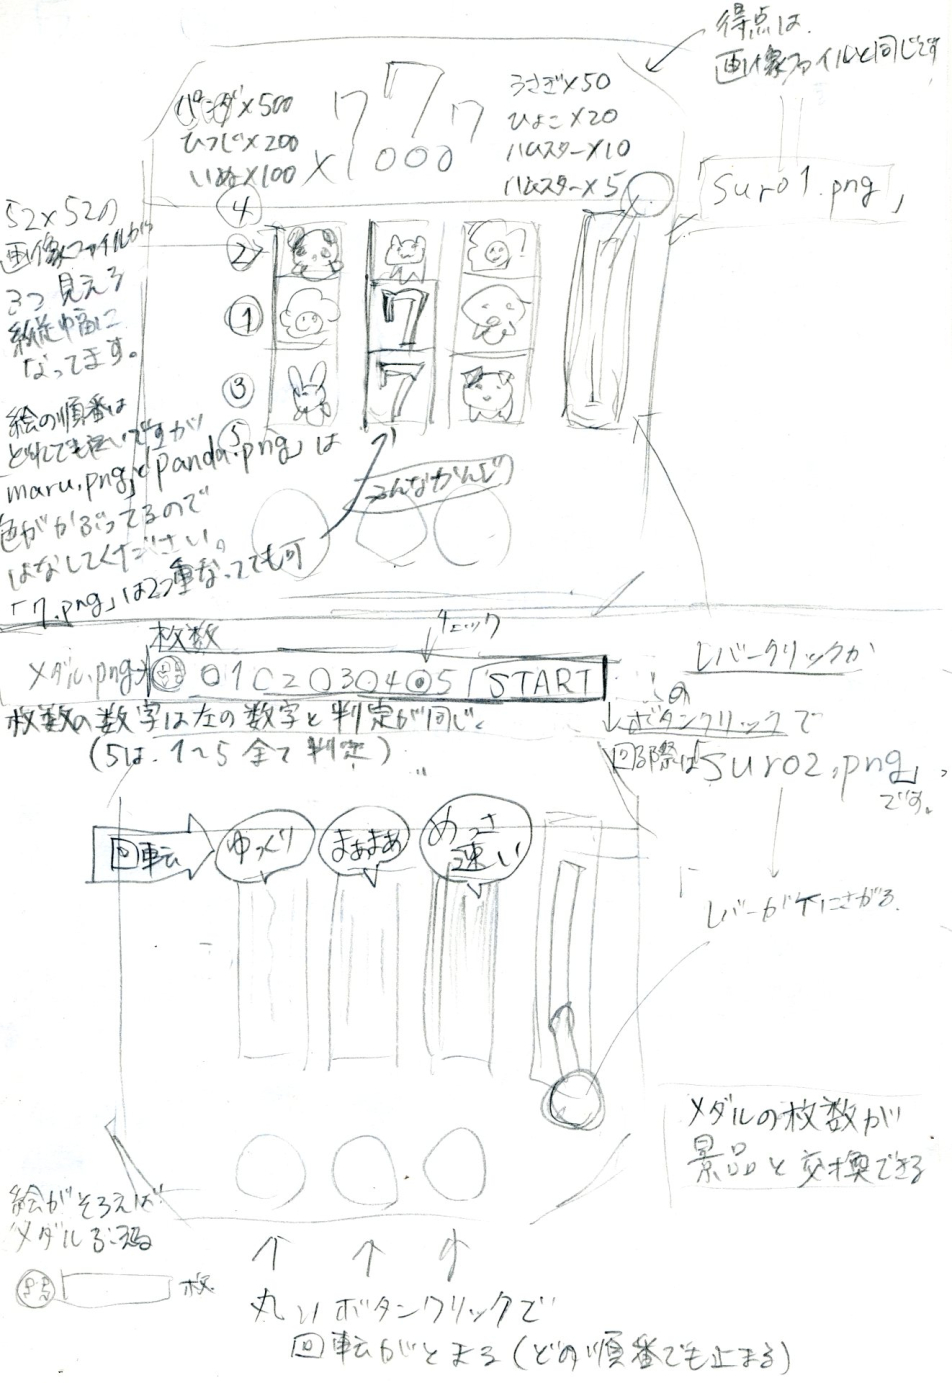 得点は、
画像ファイルと同じです
パンダ×500
ひつじ×200
いぬ×100
777
×1000
うさぎ×50
ひよこ×20
ハムスター×10
ハムスター×5
「suro1.png」
52×52の
画像ファイルが
3つ見える
縦幅に
なってます。
④
②
①
③
⑤
7
7
絵の順番は
どれでも良いですが
「maru.png」と「panda.png」は
色がかぶってるので
はなしてください。
「7.png」は2つ重なってても可
こんなかんじ
チェック
枚数
メダル.png→
○1○2○3○4◉5
START
枚数の数字は左の数字と判定が同じ。
(5は、1〜5全て判定)
レバークリックか
↓の
ボタンクリックで
回る際は「suro2.png」
です。
レバーが下にさがる。
回転
ゆっくり
まぁまぁ
めっさ
速い
メダルの枚数が
景品と交換できる
絵がそろえば
メダルふえる
枚
丸いボタンクリックで
回転がとまる(どの順番でも止まる)